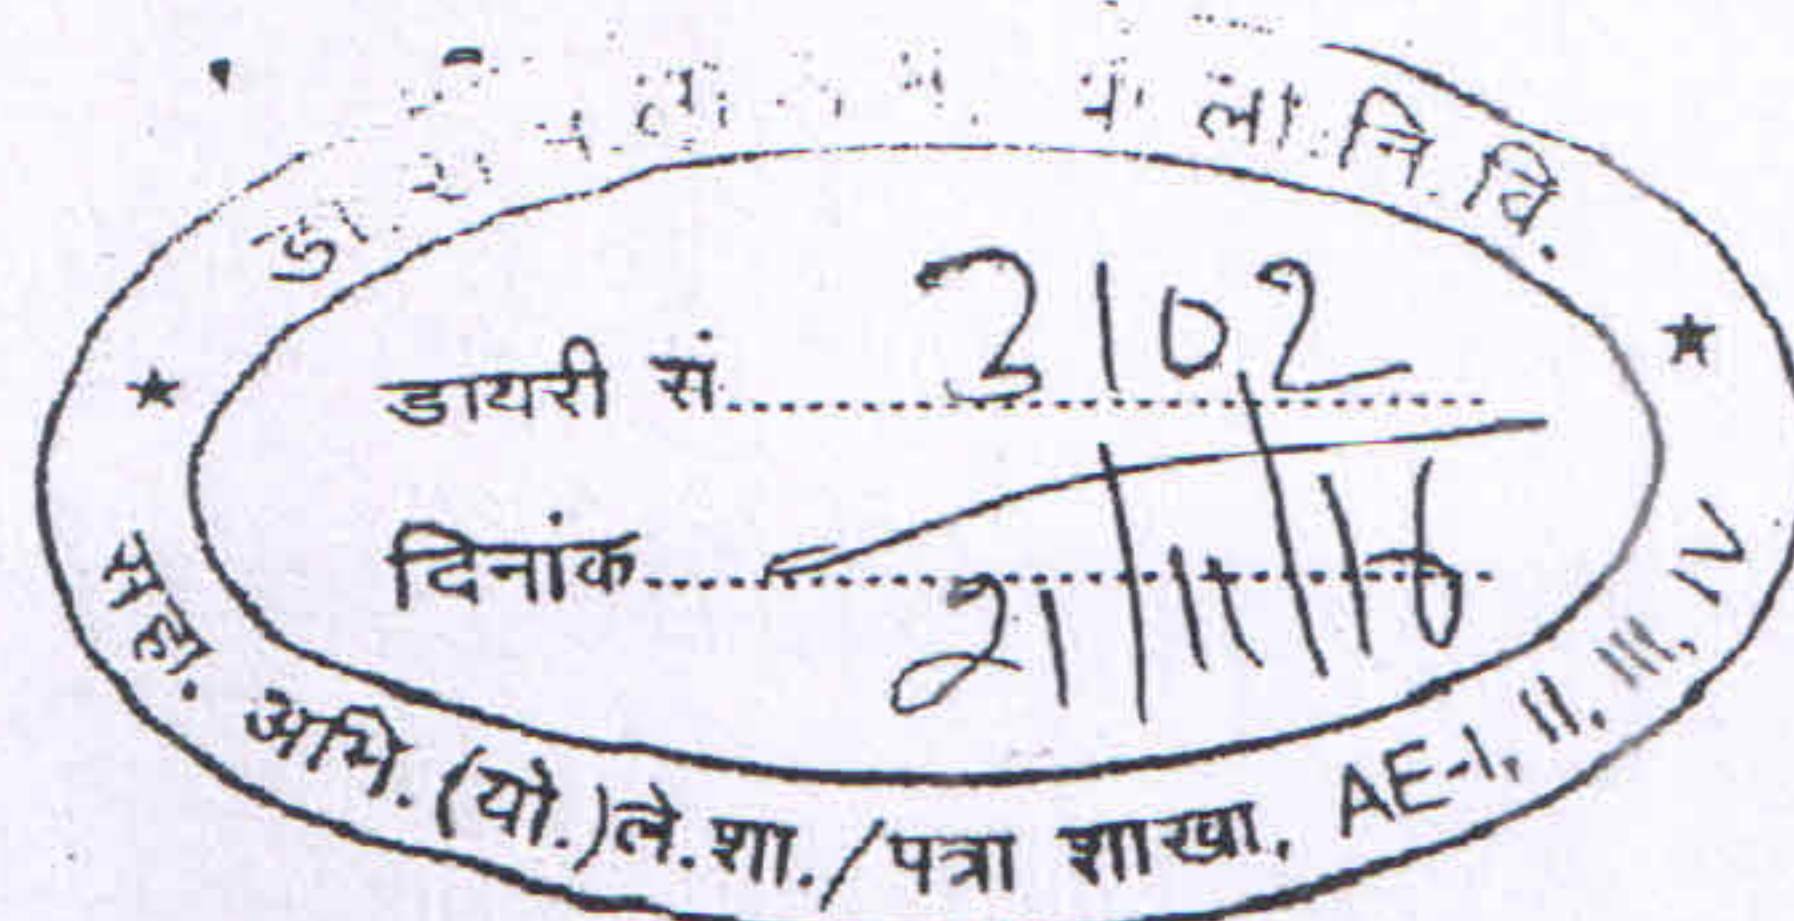 डा. रा. म. लो. लो.नि.वि.
डायरी सं. 3102
दिनांक 21/11/16
सहा. अभि.(यो.)ले.शा./पत्रा शाखा, AE-I, II, III, IV